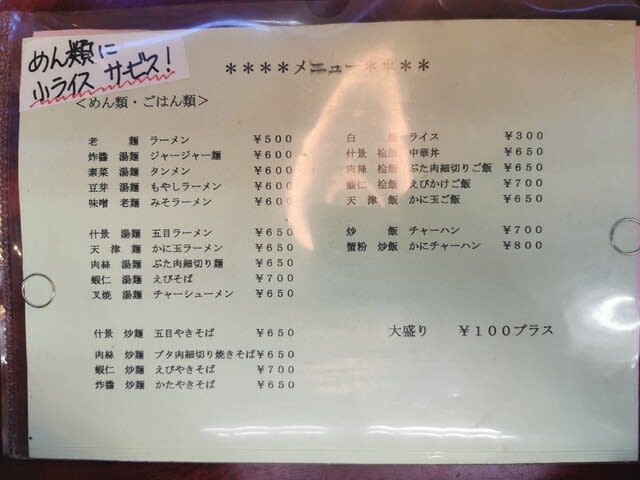 めん類に
小ライス サービス!
****メニュー****
<めん類・ごはん類>
老 麺 ラーメン ¥500
炸醬 湯麺 ジャージャー麺 ¥600
素菜 湯麺 タンメン ¥600
豆芽 湯麺 もやしラーメン ¥600
味噌 老麺 みそラーメン ¥600
什景 湯麺 五目ラーメン ¥650
天津 麺 かに玉ラーメン ¥650
肉絲 湯麺 ぶた肉細切り麺 ¥650
蝦仁 湯麺 えびそば ¥700
叉焼 湯麺 チャーシューメン ¥650
什景 炒麺 五目やきそば ¥650
肉絲 炒麺 ブタ肉細切り焼きそば¥650
蝦仁 炒麺 えびやきそば ¥700
炸醬 炒麺 かたやきそば ¥650
白 飯 ライス ¥300
什景 桧飯 中華丼 ¥650
肉絲 桧飯 ぶた肉細切りご飯 ¥650
蝦仁 桧飯 えびかけご飯 ¥700
天津 飯 かに玉ご飯 ¥650
炒 飯 チャーハン ¥700
蟹粉 炒飯 かにチャーハン ¥800
大盛り ¥100プラス